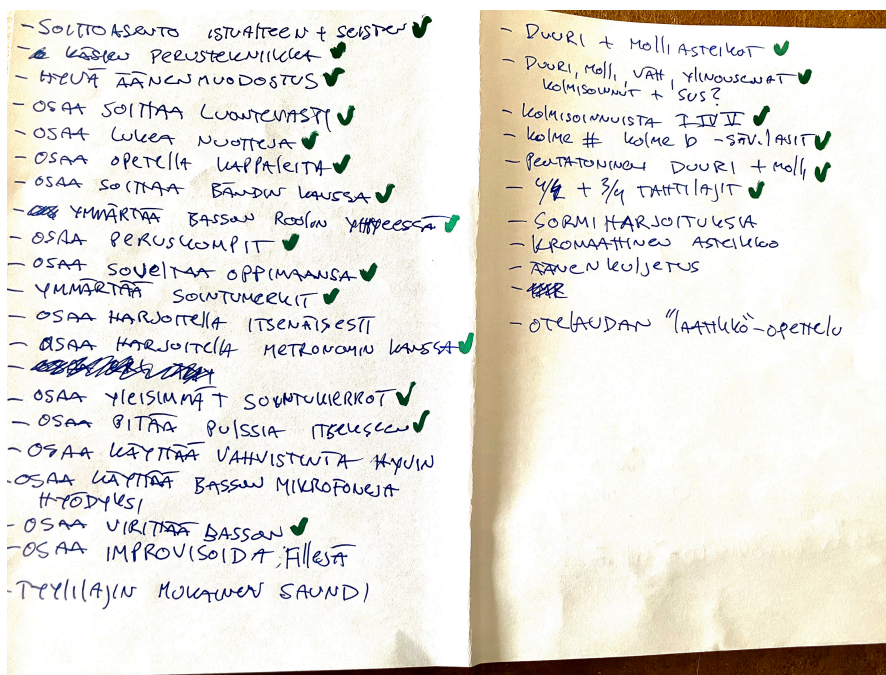 - SOITTOASENTO ISTUALTEEN + SEISTEN ✔
- KÄSIEN PERUSTEKNIIKKA ✔
- HYVÄ ÄÄNENMUODOSTUS ✔
- OSAA SOITTAA LUONTEVASTI ✔
- OSAA LUKEA NUOTTEJA ✔
- OSAA OPETELLA KAPPALEITA ✔
- OSAA SOITTAA BÄNDIN KANSSA ✔
- YMMÄRTÄÄ BASSON ROOLIN YHTYEESSÄ ✔
- OSAA PERUSKOMPIT ✔
- OSAA SOVELTAA OPPIMAANSA ✔
- YMMÄRTÄÄ SOINTUMERKIT ✔
- OSAA HARJOITELLA ITSENÄISESTI
- OSAA HARJOITELLA METRONOMIN KANSSA ✔
-
- OSAA YLEISIMMÄT SOINTUKIERROT ✔
- OSAA PITÄÄ PULSSIA ITSEKSEEN ✔
- OSAA KÄYTTÄÄ VAHVISTINTA HYVIN
- OSAA KÄYTTÄÄ BASSON MIKROFONEJA
HYÖDYKSI
- OSAA VIRITTÄÄ BASSON ✔
- OSAA IMPROVISOIDA, FILLEJÄ
- TYYLILAJIN MUKAINEN SAUNDI
- DUURI + MOLLI ASTEIKOT ✔
- DUURI, MOLLI, VÄH, YLINOUSEVAT ✔
KOLMISOINNUT + SUS?
- KOLMISOINNUISTA I IV V ✔
- KOLME # KOLME b -SÄV.LAJIT ✔
- PENTATONINEN DUURI + MOLLI ✔
- 4/4 + 3/4 TAHTILAJIT ✔
- SORMIHARJOITUKSIA
- KROMAATTINEN ASTEIKKO
- ÄÄNENKULJETUS
-
- OTELAUDAN "LAATIKKO"-OPETTELU